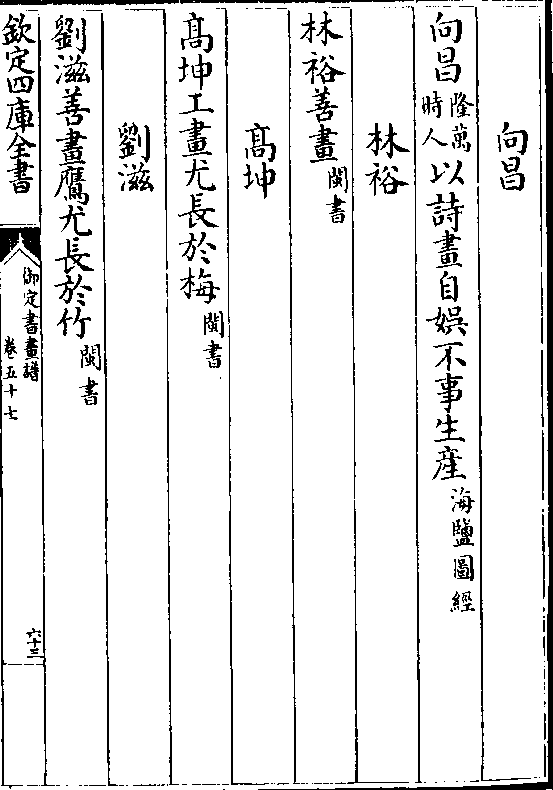 向昌
向昌隆萬時人以詩畫自娯不事生産海鹽圖經
林裕
林裕善畫閩書
髙坤
髙坤工畫尤長於梅閩書
劉滋
劉滋善畫鷹尤長於竹閩書
欽定四庫全書
御定書畫譜
卷五十七
六十三